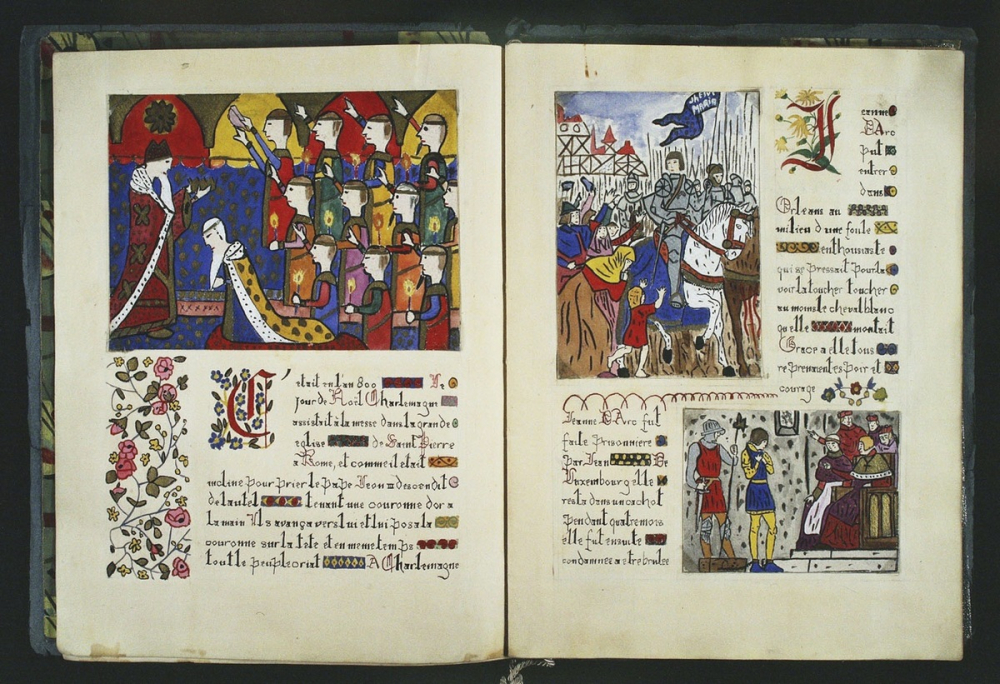 C'
était en l'an 800 Le
jour de Noël Charlemagne
assistit à la messe dans la grande
eglise de Saint Pierre
a Rome, et comme il etait
incline pour prier le pape Leon III descendit
de l'autel tenant une couronne d'or a
la main Il s avança vers lui et lui posa la
couronne sur la tete et en meme temps
tout le peuple criat A Charlemagne
JHESUS
MARIA
J
eanne
D'Arc
put
entrer
dans
Orleans au
milieu d une foule
enthousiaste
qui se pressait pour la
voir la toucher toucher
au moins le cheval blanc
qu elle montait
Grace a elle tous
reprennent espoir et
courage
Jeanne D'Arc fut
faite prisonniere
par Jean De
Luxembourg elle
resta dans un cachot
pendant quatre mois
elle fut ensuite
condannée a etre brulee